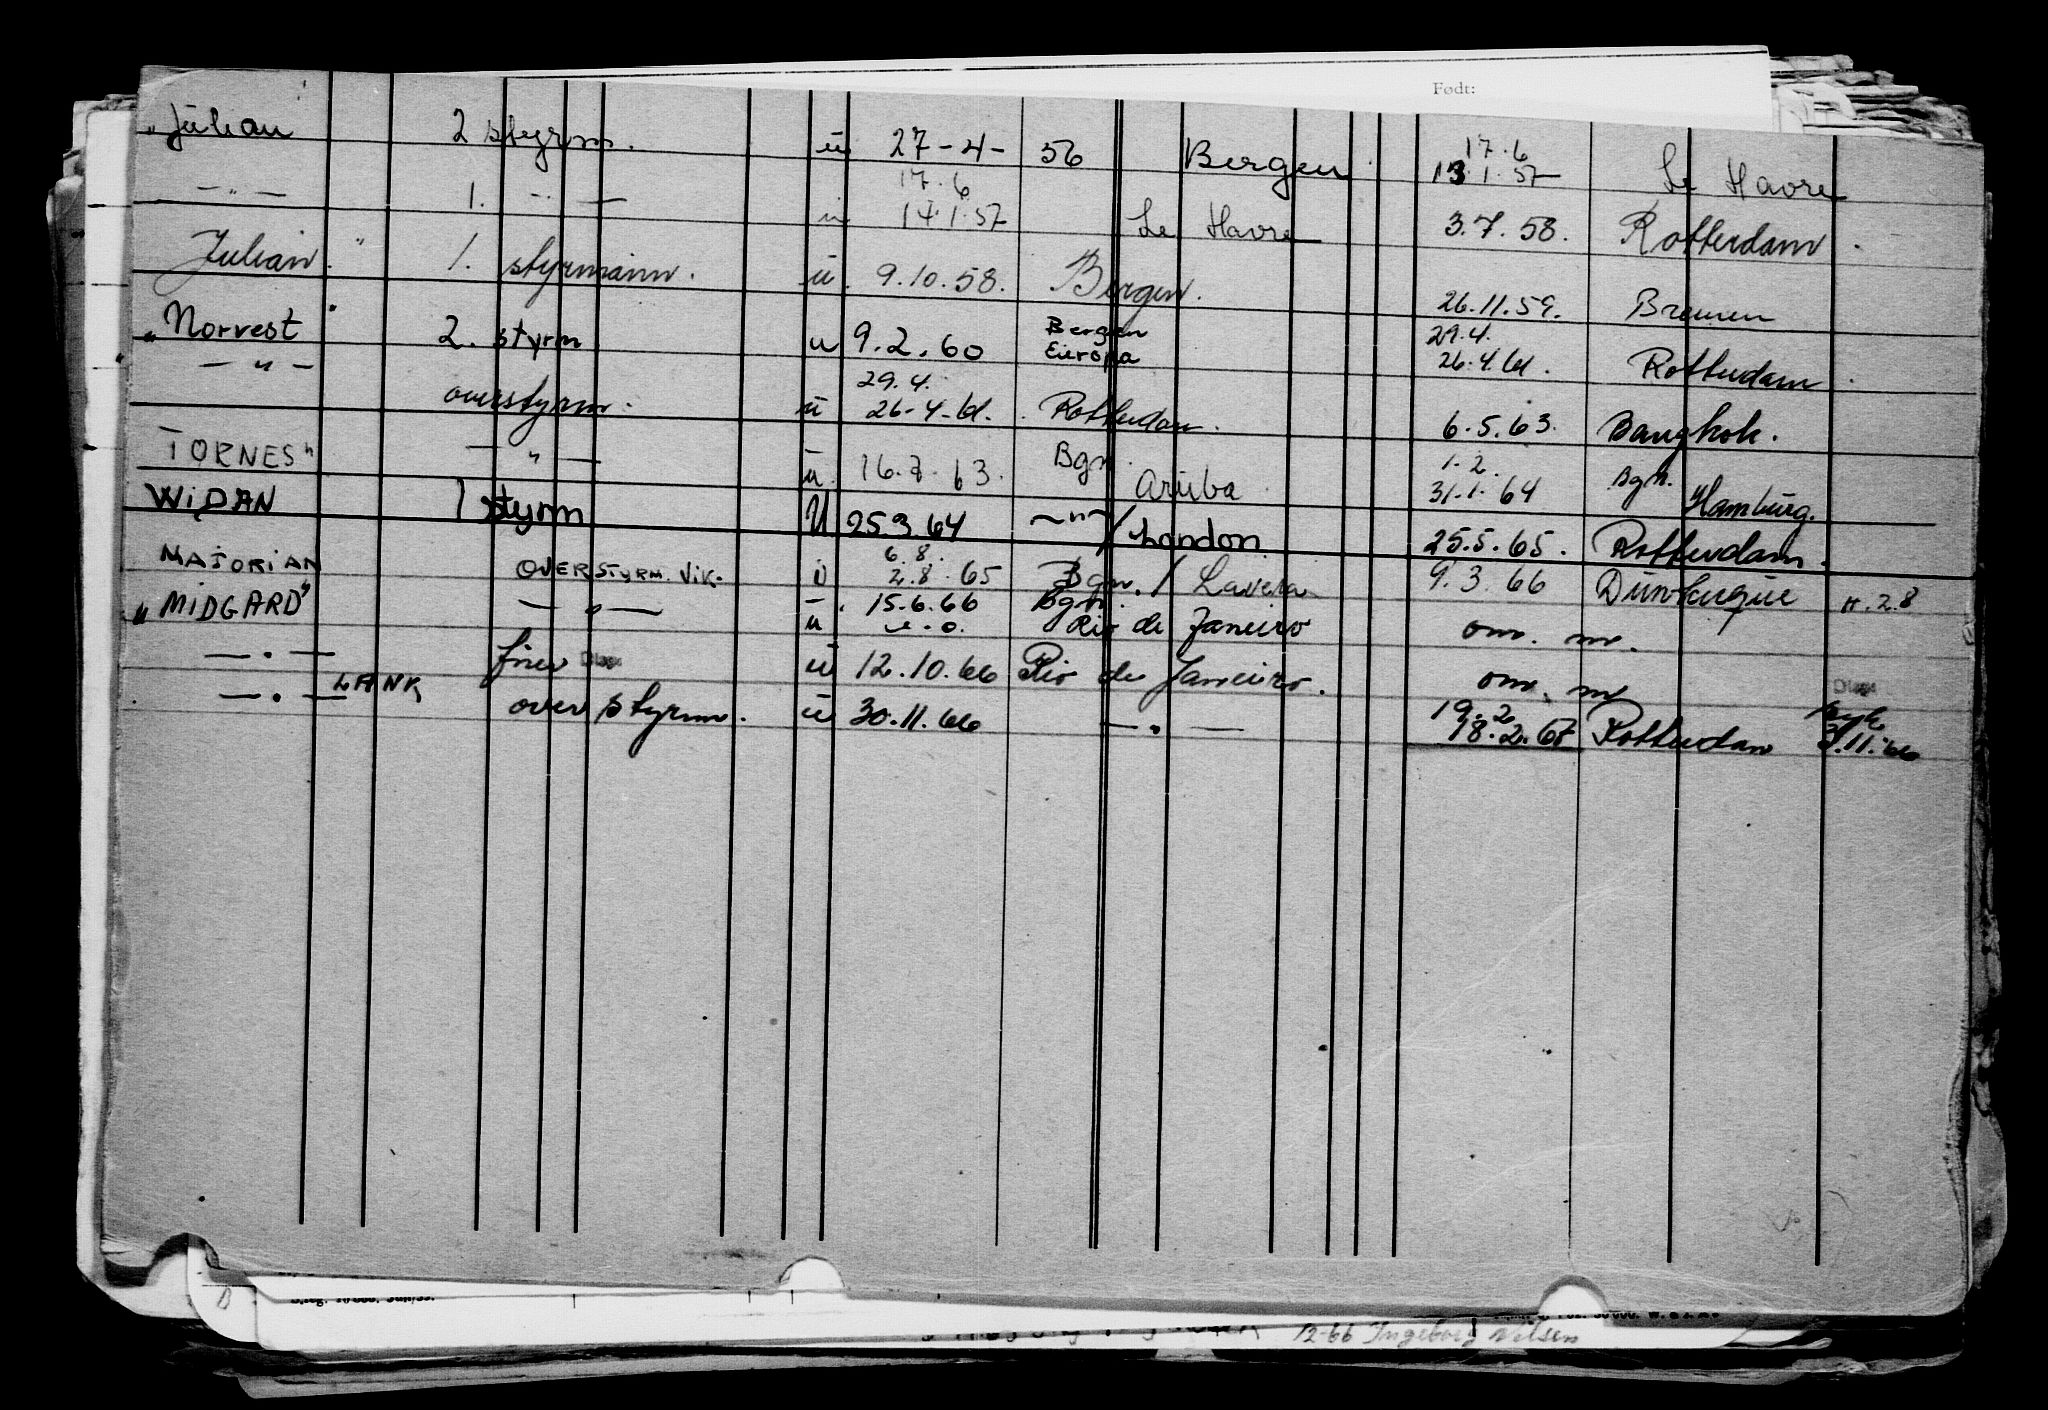 Født:
"Julian 2 styrm. u 27-4-56 Bergen 17.6 13.1.57 Le Havre
-"- 1. -"- u 17.6 14.1.57 Le Havre 3.7.58. Rotterdam
Julian" 1. styrmann. u. 9.10.58. Bergen. 26.11.59. Bremen
"Norvest" 2. styrm u 9.2.60 Bergen Europa 29.4. 26.4.61. Rotterdam
-"- overstyrm. u 29.4. 26-4-61. Rotterdam. 6.5.63. Bangkok.
TORNES" -"- u. 16.7.63. Bgn. Aruba 1.2. 31.1.64 Bgn. Hamburg.
WIDAN 1 styrm U 25.3.64 -"-/London 25.5.65. Rotterdam.
MAJORIAN OVERSTYRM. VIK. u 6.8. 2.8.65 Bgn./Lavera 9.3.66 Dunkerque H.2.8
"MIDGARD" -"- u 15.6.66 Bgn. Rio de Janeiro om. m.
-"- fører u 12.10.66 Rio de Janeiro. om. m
-"- LANK over styrm. u 30.11.66 -"- 19.2 18.2.67 Rotterdam 3.11.66
12-66 Ingeborg Nilsen